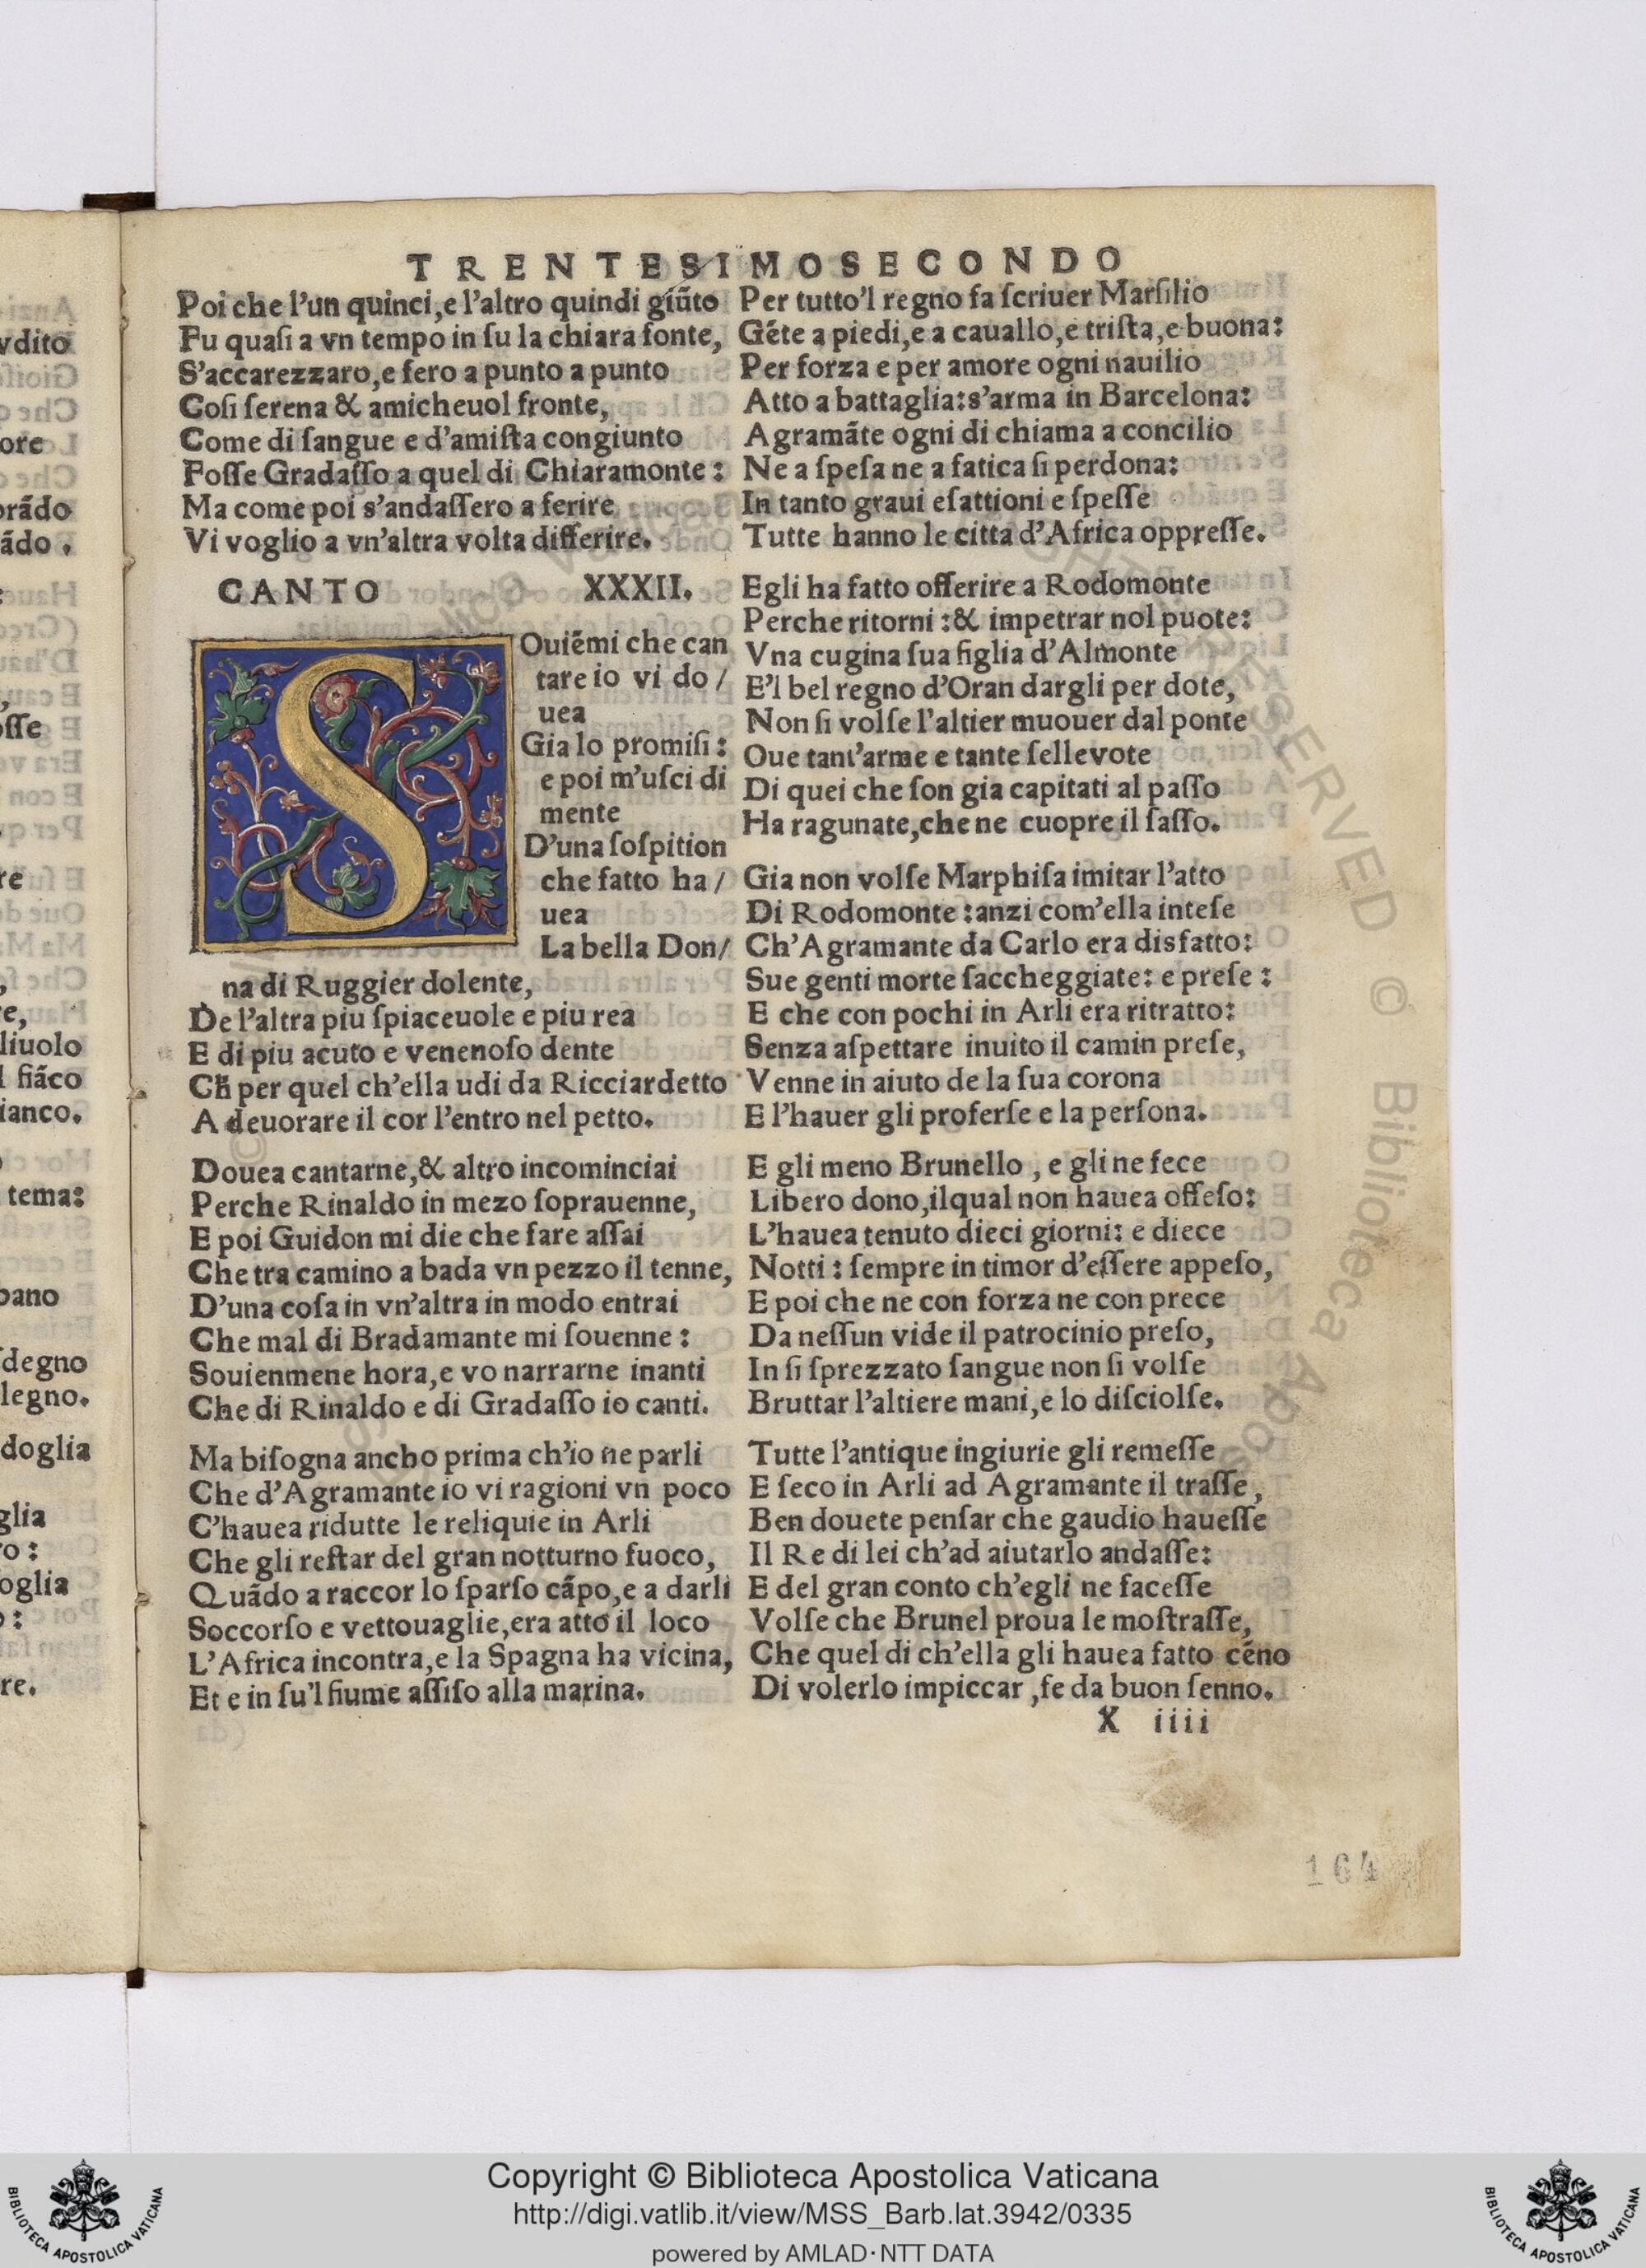 TRENTESIMOSECONDO
Poi che l'un quinci,e l'altro quindi giũto
Fu quaſi a vn tempo in ſu la chiara fonte,
S'accarezzaro,e fero a punto a punto
Coſi ſerena & amicheuol fronte,
Come di ſangue e d'amiſta congiunto
Foſſe Gradaſſo a quel di Chiaramonte:
Ma come poi s'andaſſero a ferire
Vi voglio a vn'altra volta differire.
CANTO XXXII.
SOuiẽmi che can
tare io vi do/
uea
Gia lo promiſi:
e poi m'uſci di
mente
D'una ſoſpition
che fatto ha/
uea
La bella Don/
na di Ruggier dolente,
De l'altra piu ſpiaceuole e piu rea
E di piu acuto e venenoſo dente
Cħ per quel ch'ella udi da Ricciardetto
A deuorare il cor l'entro nel petto.
Douea cantarne,& altro incominciai
Perche Rinaldo in mezo ſoprauenne,
E poi Guidon mi die che fare aſſai
Che tra camino a bada vn pezzo il tenne,
D'una coſa in vn'altra in modo entrai
Che mal di Bradamante mi ſouenne:
Souienmene hora,e vo narrarne inanti
Che di Rinaldo e di Gradaſſo io canti.
Ma biſogna ancho prima ch'io ne parli
Che d'Agramante io vi ragioni vn poco
C'hauea ridutte le reliquie in Arli
Che gli reſtar del gran notturno fuoco,
Quãdo a raccor lo ſparſo cãpo,e a darli
Soccorſo e vettouaglie,era atto il loco
L'Africa incontra,e la Spagna ha vicina,
Et e in ſu'l fiume aſſiſo alla marina.
Per tutto'l regno fa ſcriuer Marſilio
Gẽte a piedi,e a cauallo,e triſta,e buona:
Per forza e per amore ogni nauilio
Atto a battaglia:s'arma in Barcelona:
Agramãte ogni di chiama a concilio
Ne a ſpeſa ne a fatica ſi perdona:
In tanto graui eſattioni e ſpeſſe
Tutte hanno le citta d'Africa oppreſſe.
Egli ha fatto offerire a Rodomonte
Perche ritorni:& impetrar nol puote:
Vna cugina ſua figlia d'Almonte
E'l bel regno d'Oran dargli per dote,
Non ſi volſe l'altier muouer dal ponte
Oue tant'arme e tante ſelle vote
Di quei che ſon gia capitati al paſſo
Ha ragunate,che ne cuopre il ſaſſo.
Gia non volſe Marphiſa imitar l'atto
Di Rodomonte:anzi com'ella inteſe
Ch'Agramante da Carlo era disfatto:
Sue genti morte ſaccheggiate: e preſe:
E che con pochi in Arli era ritratto:
Senza aſpettare inuito il camin preſe,
Venne in aiuto de la ſua corona
E l'hauer gli proferſe e la perſona.
E gli meno Brunello, e gli ne fece
Libero dono,ilqual non hauea offeſo:
L'hauea tenuto dieci giorni: e diece
Notti: ſempre in timor d'eſſere appeſo,
E poi che ne con forza ne con prece
Da neſſun vide il patrocinio preſo,
In ſi ſprezzato ſangue non ſi volſe
Bruttar l'altiere mani,e lo diſciolſe.
Tutte l'antique ingiurie gli remeſſe
E ſeco in Arli ad Agramante il traſſe,
Ben douete penſar che gaudio haueſſe
Il Re di lei ch'ad aiutarlo andaſſe:
E del gran conto ch'egli ne faceſſe
Volſe che Brunel proua le moſtraſſe,
Che quel di ch'ella gli hauea fatto cẽno
Di volerlo impiccar,fe da buon ſenno.
X iiii
164
vdito
ore
orãdo
ãdo.
oſſe
re
e,
liuolo
l fiãco
ianco.
tema:
bano
ſdegno
legno.
doglia
glia
o:
oglia
re.
Copyright © Biblioteca Apostolica Vaticana
http://digi.vatlib.it/view/MSS_Barb.lat.3942/0335
powered by AMLAD·NTT DATA
BIBLIOTECA APOSTOLICA VATICANA
BIBLIOTECA APOSTOLICA VATICANA